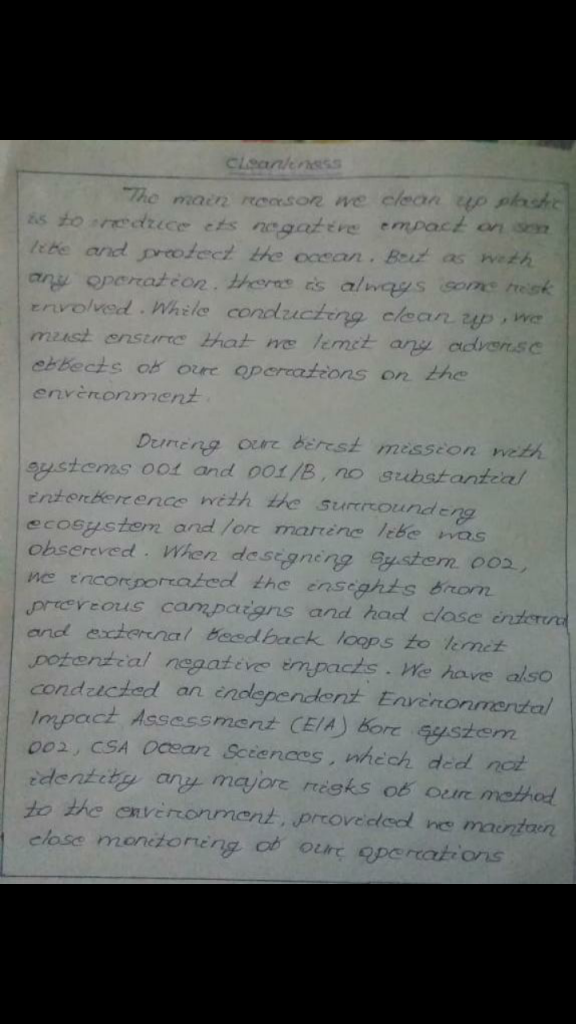 Cleanliness
The main reason we clean up plastic
is to reduce its negative impact on sea
life and protect the ocean. But as with
any operation, there is always some risk
involved. While conducting clean up, we
must ensure that we limit any adverse
effects of our operations on the
environment.
During our first mission with
systems 001 and 001/B, no substantial
interference with the surrounding
ecosystem and/or marine life was
observed. When designing System 002,
we incorporated the insights from
previous campaigns and had close internal
and external feedback loops to limit
potential negative impacts. We have also
conducted an independent Environmental
Impact Assessment (EIA) for system
002, CSA Ocean Sciences, which did not
identity any major risks of our method
to the environment, provided we maintain
close monitoring of our operations